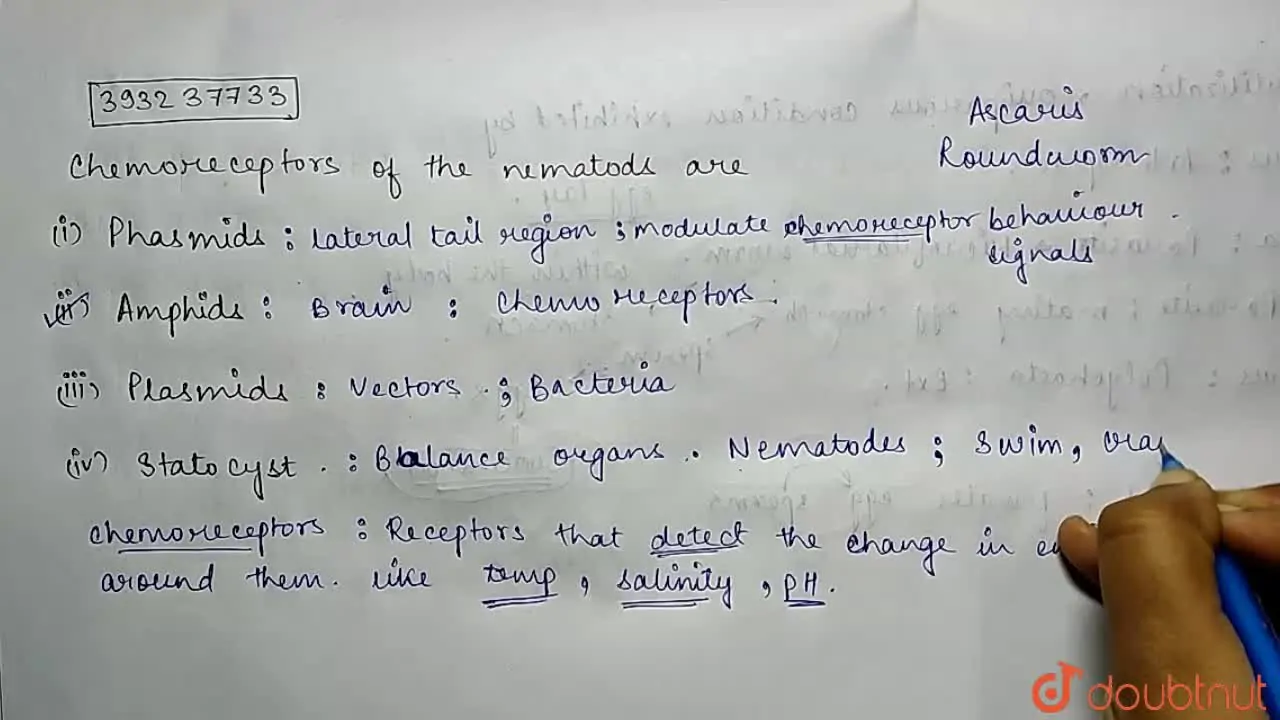 393237733
Ascaris
Chemoreceptors of the nematods are
Roundworm
(i) Phasmids : lateral tail region ; modulate chemoreceptor behaviour .
signals
(ii) Amphids : Brain : Chemoreceptors .
(iii) Plasmids : Vectors ; Bacteria
(iv) Statocyst . : Balance organs . Nematodes ; Swim,
chemoreceptors : Receptors that detect the change in
around them. like temp , salinity , pH .
doubtnut